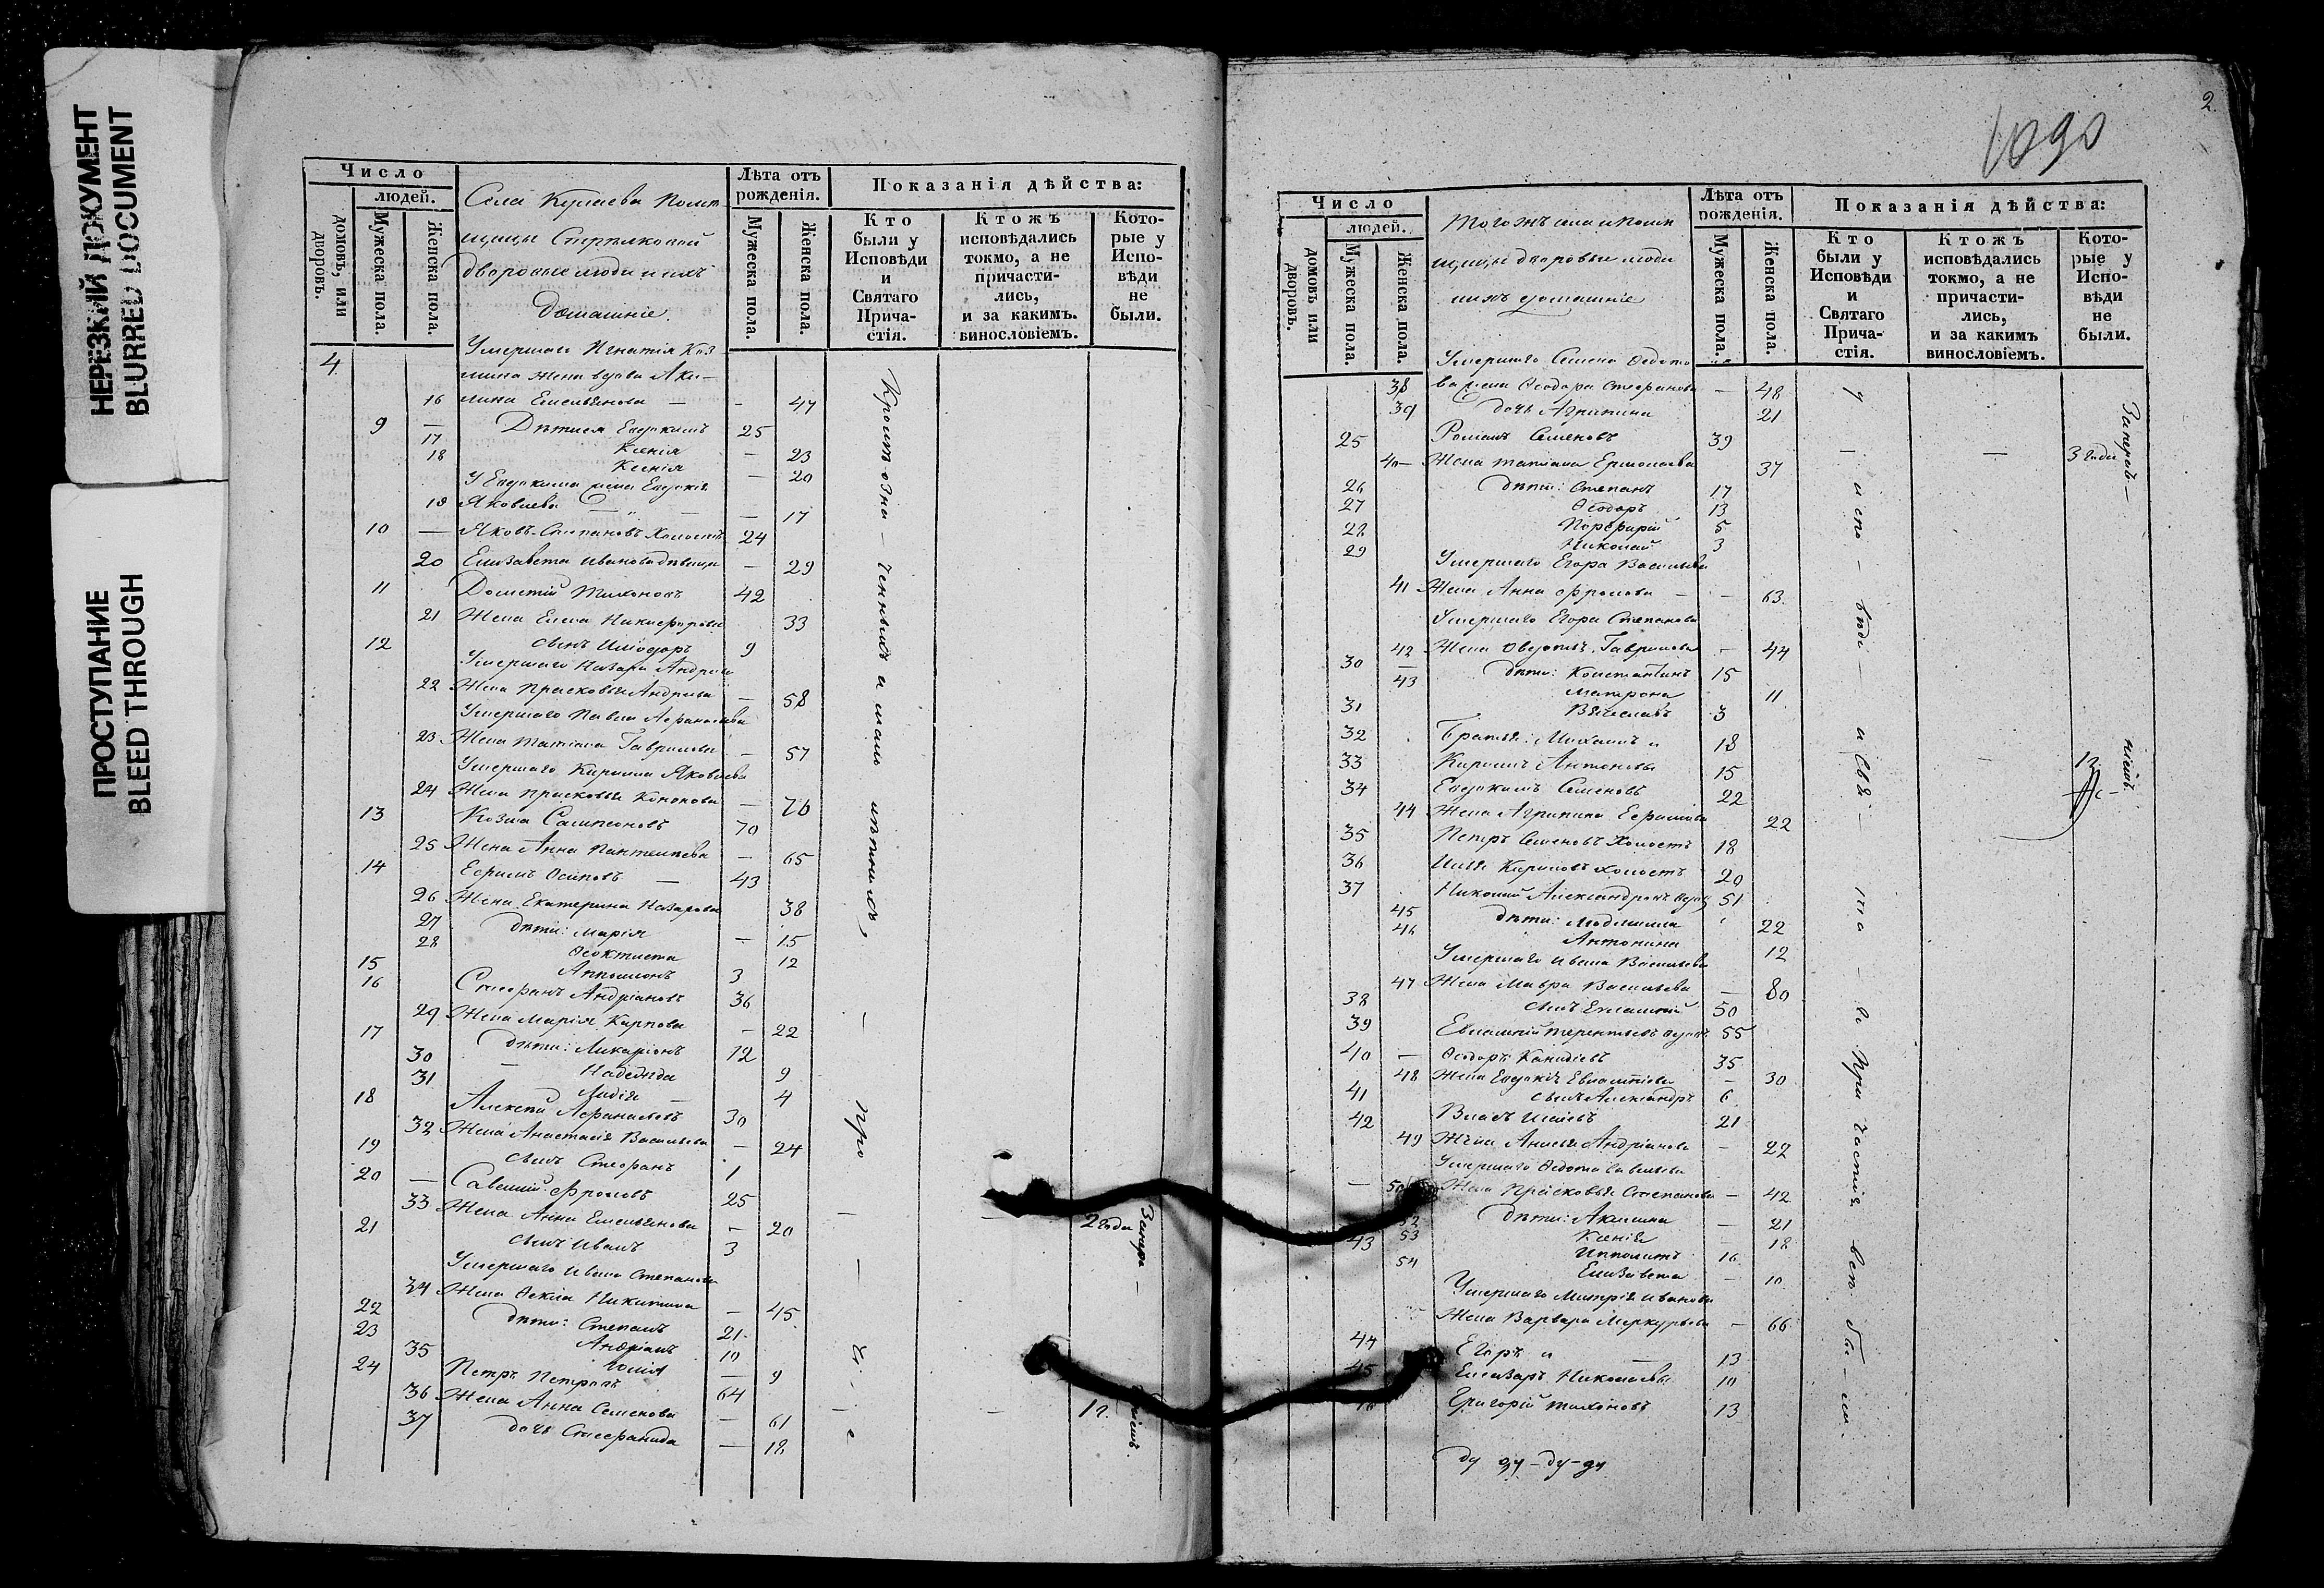 НЕРЕЗКИЙ ДОКУМЕНТ
BLURRED DOCUMENT
ПРОСТУПАНИЕ
BLEED THROUGH
Число
людей.
домовъ, или дворовъ.
Мужеска пола.
Женска пола.
Села Помѣ-
щицы Стрѣлковой
дворовые люди и ихъ
домашніе.
Лѣта отъ рожденія.
Мужеска пола.
Женска пола.
Показанія дѣйства:
Кто были у Исповѣди и Святаго Прича-стія.
Ктожъ исповѣдались токмо, а не причасти-лись, и за какимъ. винословіемъ.
Кото-рые у Испо-вѣди не были.
4 Умершаго Игнатія Коз-
мина жена вдова Аку-
16 лина Емельянова — - 47
9 — Дѣти ея Евдокимъ 25
17 Ксенія — 23
18 Ксенія — 20
У Евдокима жена Евдокія
19 Яковлева — 17
10 — Яковъ Холостъ 24
20 Елизавета Иванова дѣвица — 29
11 Дометій Тихоновъ 42
21 Жена Елена Никифорова 33
12 сынъ Иліодоръ 9
Умершаго Назара Андреева
22 Жена Прасковья Андреева — 58
Умершаго Павла Афанасьева
23 Жена Татіана Гаврилова — 57
Умершаго Кирилла Яковлева
24 Жена Прасковья Кононова — 76
13 Козма Сампсоновъ 70
25 Жена Анна Пантелеева — 65
14 Ефремъ Осиповъ — 43
26 Жена Екатерина Назарова 38
27 дѣти: Марія — 15
28 Ѳеоктиста 12
15 Апполлонъ 3
16 Стефанъ Андріановъ 36
29 Жена Марія Карпова — 22
17 дѣти: Иларіонъ 12
30 — Надежда 9
31 Лидія — 4
18 Алексѣй Афанасьевъ 30
32 Жена Анастасія Васильева — 24
19 сынъ Стефанъ 1
20 — Савелій Фроловъ 25
33 Жена Анна Емельянова — 20
21 сынъ Иванъ 3
Умершаго Ивана Степанова
34 Жена Ѳекла Никитина — 45
22 дѣти: Степанъ 21
23 Андріанъ 10
35 Юлія — 9
24 Петръ Петровъ 64
36 Жена Анна Семенова — 61
37 дочь Стефанида — 18
Кромѣ озна — ченныхъ и мало лѣтнихъ, — про — ч — і — е
2 года
1 г.
2
1090
Число
людей.
домовъ или дворовъ.
Мужеска пола.
Женска пола.
Того жъ села и помѣ-
щицы дворовые люди
и ихъ домашніе
Лѣта отъ рожденія.
Мужеска пола.
Женска пола.
Показанія дѣйства:
Кто были у Исповѣди и Святаго Прича-стія.
Ктожъ исповѣдались токмо, а не причасти-лись, и за какимъ винословіемъ.
Кото-рые у Испо-вѣди не были.
Умершаго Семена Ѳедото-
38 ва жена Ѳеодора Стефанова — 48
39 дочь Агрипина 21
25 Романъ Семеновъ 39
40 — Жена Татіана Ермолаева 37
26 дѣти: Степанъ 17
27 Ѳеодоръ 13
28 Порфирій 5
29 Николай 3
Умершаго Егора Васильева
41 Жена Анна Фролова — — 63
Умершаго Егора Степанова
42 Жена Гаврилова — 44
30 — дѣти: Константинъ 15
43 Матрона 11
31 Вячеславъ 3
32 Братья: Михаилъ и 18
33 Кириллъ Антоновы 15
34 Евдокимъ Семеновъ 22
44 Жена Агрипина Ефимова 22
35 Петръ Семеновъ Холостъ 18
36 Илія Кириловъ холостъ 20
37 Николай Александровъ вдовъ 51
45 дѣти: Людмила 22
46 Антонина 12
Умершаго Ивана Васильева
47 Жена Мавра Васильева — 80
38 сынъ Евлампій 50
39 Евлампій Терентьевъ вдовъ 55
40 — Ѳеодоръ 35
48 Жена Евдокія Евлампіева — 30
41 сынъ Александръ 6
42 Власъ Исаевъ 21
49 Жена Анисья Андріанова — 22
Умершаго Ѳедота Савельева
— 50 Жена Прасковья Степанова — 42
52 дѣти: Акилина — 21
53 Ксенія — 18
43 Ипполитъ 16
54 Елизавета — 10
Умершаго Митрія Иванова
Жена Варвара Меркурьева — 66
44 Егоръ и — 13
45 Елеазаръ Николаевы 10
46 Григорій Тихоновъ 13
у — испо — вѣди — и Свя — та — го Причастія всѣ бы — ли.
3 года
1 г.